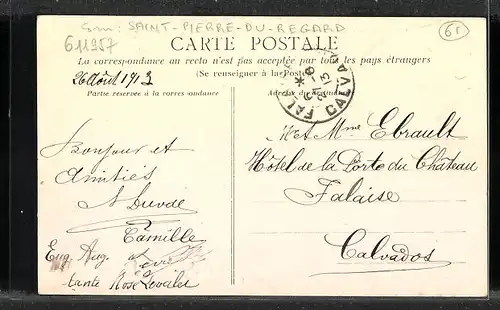 Gm: SAINT-PIERRE-DU-REGARD
611957
61
CARTE POSTALE
La correspondance au recto n'est pas acceptée par tous les pays étrangers
(Se renseigner à la Poste)
26 Août 1913
Partie réservée à la correspondance
Adresse du destinataire
CALVA
Bonjour et
Amitiés
Camille
Eug. Aug.
tante Rose
M et Mme Ebrault
Hôtel de la Porte du Château
Falaise
Calvados